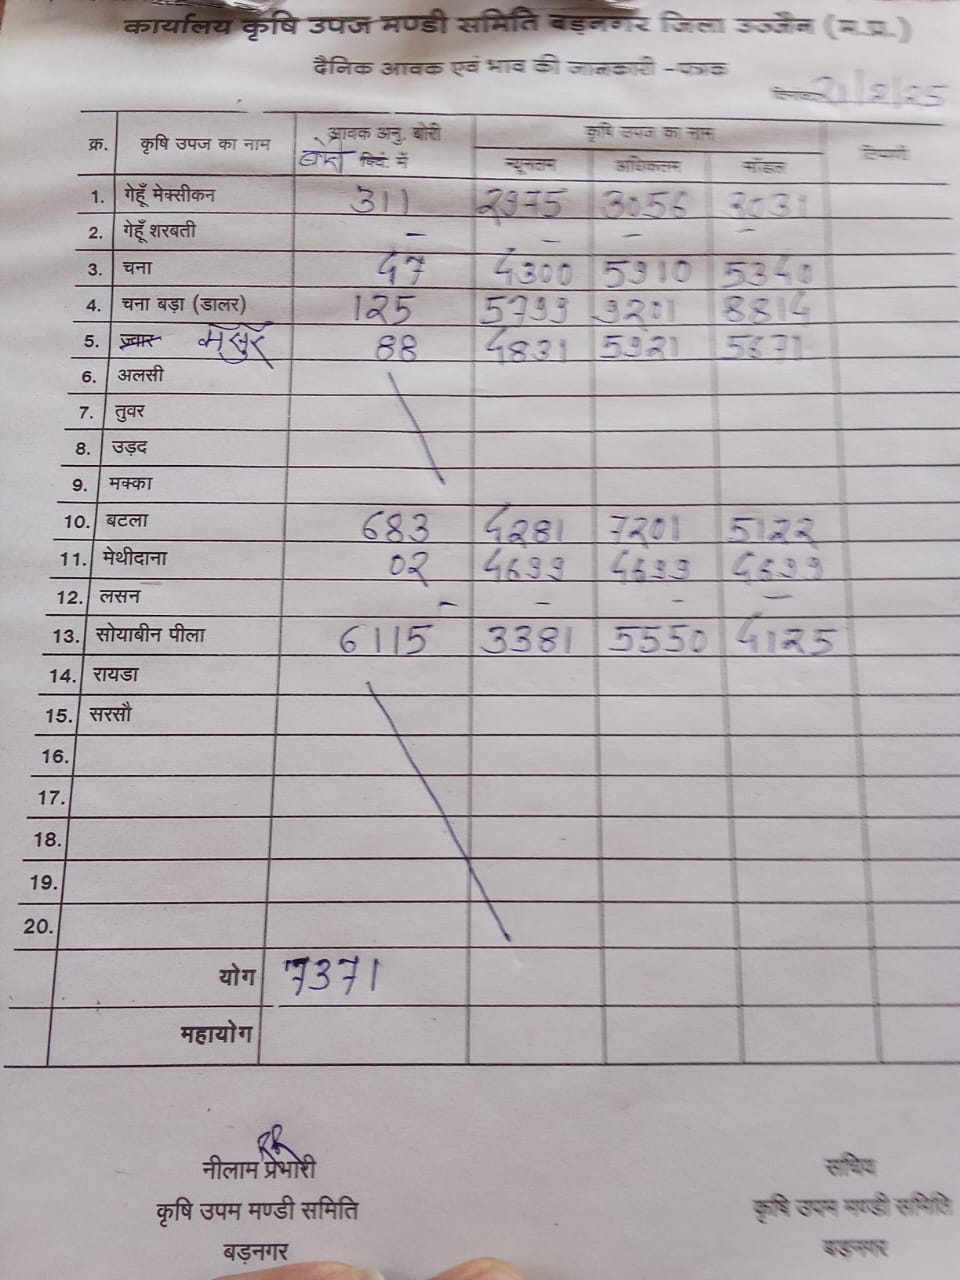 कार्यालय कृषि उपज मण्डी समिति बड़नगर जिला उज्जैन (म.प्र.)
दैनिक आवक एवं भाव की जानकारी -पत्रक
दिनांक 21/2/25
क्र. कृषि उपज का नाम आवक अनु. बोरी क्विं. में कृषि उपज का नाम टिप्पणी
न्यूनतम अधिकतम मॉडल
1. गेहूँ मेक्सीकन 311 2975 3056 3031
2. गेहूँ शरबती - - - -
3. चना 47 4300 5910 5340
4. चना बड़ा (डालर) 125 5799 9201 8814
5. ज्वार मसुर 88 4831 5921 5671
6. अलसी
7. तुवर
8. उड़द
9. मक्का
10. बटला 683 4281 7201 5122
11. मेथीदाना 02 4699 4699 4699
12. लसन - - - -
13. सोयाबीन पीला 6115 3381 5550 4125
14. रायडा
15. सरसौ
16.
17.
18.
19.
20.
योग 7371
महायोग
नीलाम प्रभारी
कृषि उपम मण्डी समिति
बड़नगर
सचिव
कृषि उपम मण्डी समिति
बड़नगर